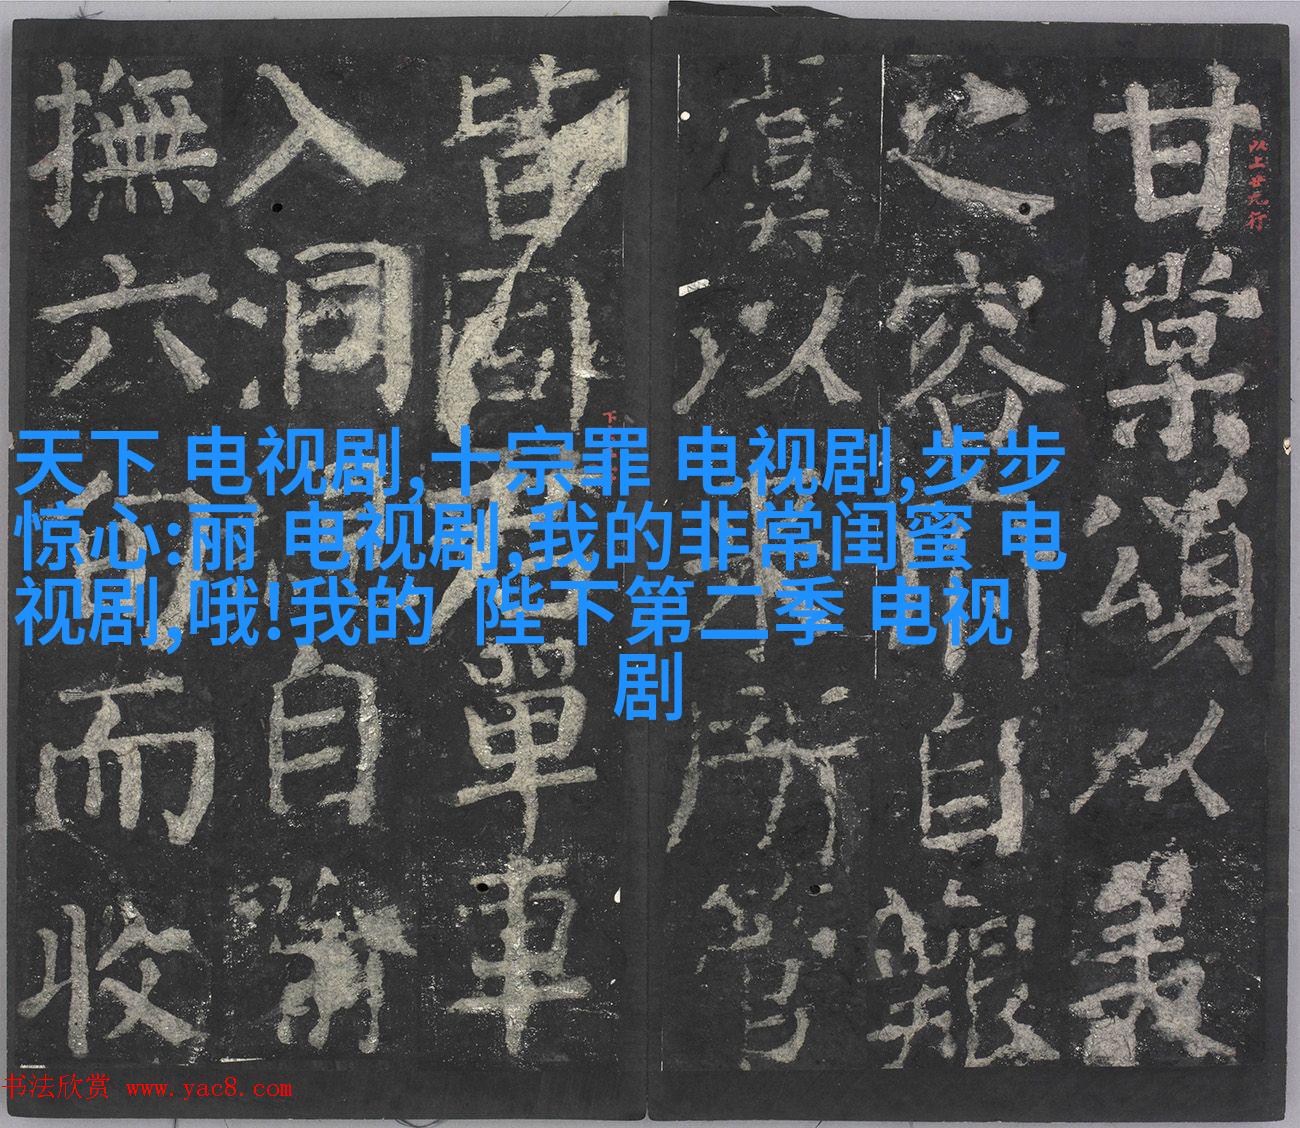 甘棠頌以美
之容□則自龜
奠以□□所管
皆百君單車
入洞□自箭
撫六□而收
以上廿九行
天下 电视剧,十宗罪 电视剧,步步
惊心:丽 电视剧,我的非常闺蜜 电
视剧,哦!我的 陛下第二季 电视
剧
书法欣赏 www.yac8.com